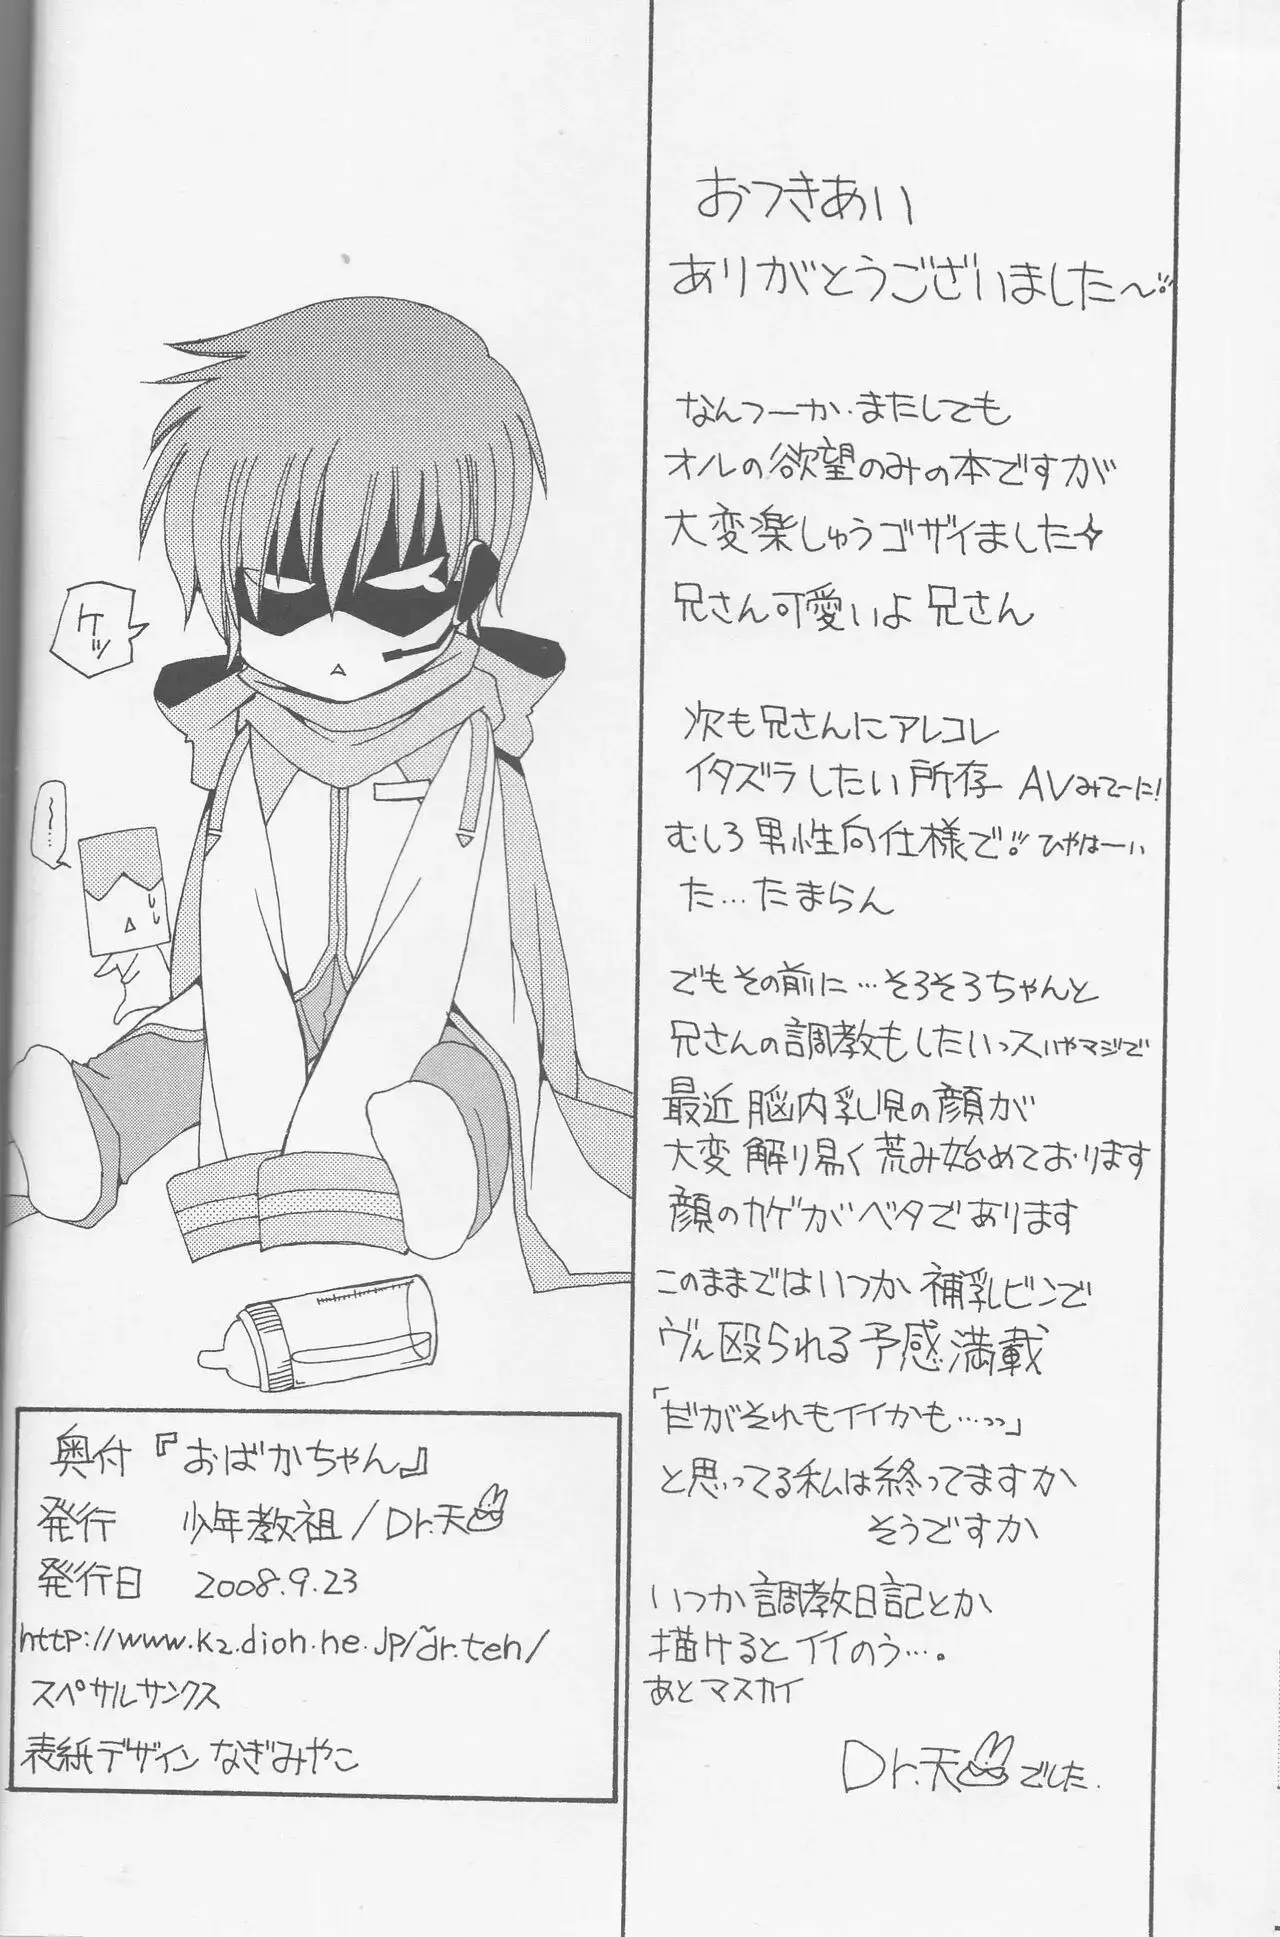 おつきあい
ありがとうございました〜!!
なんつーか・またしても
オルの欲望のみの本ですが
大変楽しゅうゴザイました☆
兄さん可愛いよ兄さん
次も兄さんにアレコレ
イタズラしたい所存 AVみてーに!
むしろ男性向仕様で!! ひゃはーい
た…たまらん
でもその前に…そろそろちゃんと
兄さんの調教もしたいっスいやマジで
最近脳内乳児の顔が
大変解り易く荒み始めております
顔のカゲがベタであります
このままではいつか補乳ビンで
ヴん殴られる予感満載
「だがそれもイイかも…っっ」
と思ってる私は終ってますか
そうですか
いつか調教日記とか
描けるとイイのう…。
あとマスカイ
Dr.天でした.
ケッ
〜…
奥付『おばかちゃん』
発行 少年教祖/Dr.天
発行日 2008.9.23
http://www.k2.dion.ne.jp/~dr.ten/
スペサルサンクス
表紙デザイン なぎみやこ